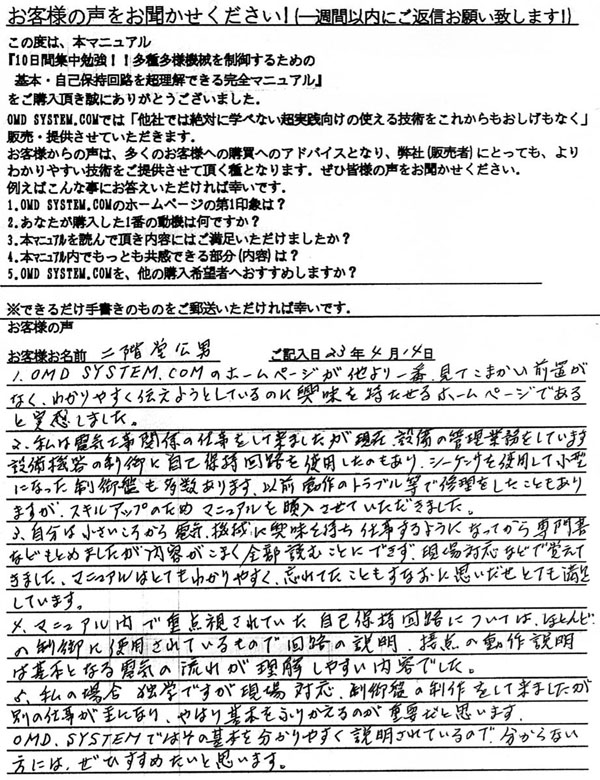 お客様の声をお聞かせください！(一週間以内にご返信お願い致します！)
この度は、本マニュアル
『10日間集中勉強！！多種多様機械を制御するための
基本・自己保持回路を超理解できる完全マニュアル』
をご購入頂き誠にありがとうございました。
OMD SYSTEM.COMでは「他社では絶対に学べない超実践向けの使える技術をこれからもおしげもなく」
販売・提供させていただきます。
お客様からの声は、多くのお客様への購買へのアドバイスとなり、弊社(販売者)にとっても、より
わかりやすい技術をご提供させて頂く種となります。ぜひ皆様の声をお聞かせください。
例えばこんな事にお答えいただければ幸いです。
1.OMD SYSTEM.COMのホームページの第1印象は？
2.あなたが購入した1番の動機は何ですか？
3.本マニュアルを読んで頂き内容にはご満足いただけましたか？
4.本マニュアル内でもっとも共感できる部分(内容)は？
5.OMD SYSTEM.COMを、他の購入希望者へおすすめしますか？
※できるだけ手書きのものをご郵送いただければ幸いです。
お客様の声
お客様お名前 二階堂公男 ご記入日23年4月14日
1.OMD SYSTEM.COMのホームページが他より一番、見てこまかい前置が
なく、わかりやすく伝えようとしているのに興味を持たせるホームページである
と実感しました。
2.私は電気工事関係の仕事をして来ましたが現在、設備の管理業務をしています
設備機器の制御に自己保持回路を使用したのもあり、シーケンサを使用して小型
になった制御盤も多数あります、以前動作のトラブル等で修理をしたこともあり
ますが、スキルアップのためマニュアルを購入させていただきました。
3.自分は小さいころから電気、機械に興味を持ち仕事するようになってから専門書
などもとめましたが内容がこまく全部読むことにできず、現場対応などで覚えて
きました、マニュアルはとてもわかりやすく、忘れてたこともすなおに思いだせとても満足
しています。
4.マニュアル内で重点視されていた自己保持回路については、ほとんど
の制御に使用されているもので回路の説明、接点の動作説明
は基本となる電気の流れが理解しやすい内容でした。
5.私の場合独学ですが現場対応、制御盤の制作をして来ましたが
別の仕事が主になり、やはり基本をふりかえるのが重要だと思います、
OMD.SYSTEMではその基本を分かりやすく説明されているので、分からない
方には、ぜひすすめたいと思います。